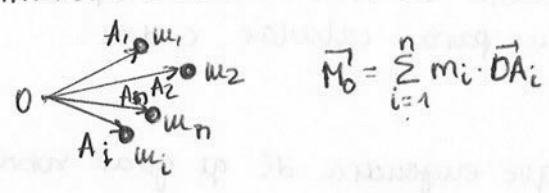 A₁ m₁
m₂
O A_n A₂
m_n
A_i m_i
\vec{M_0} = \sum_{i=1}^{n} m_i \cdot \vec{OA_i}